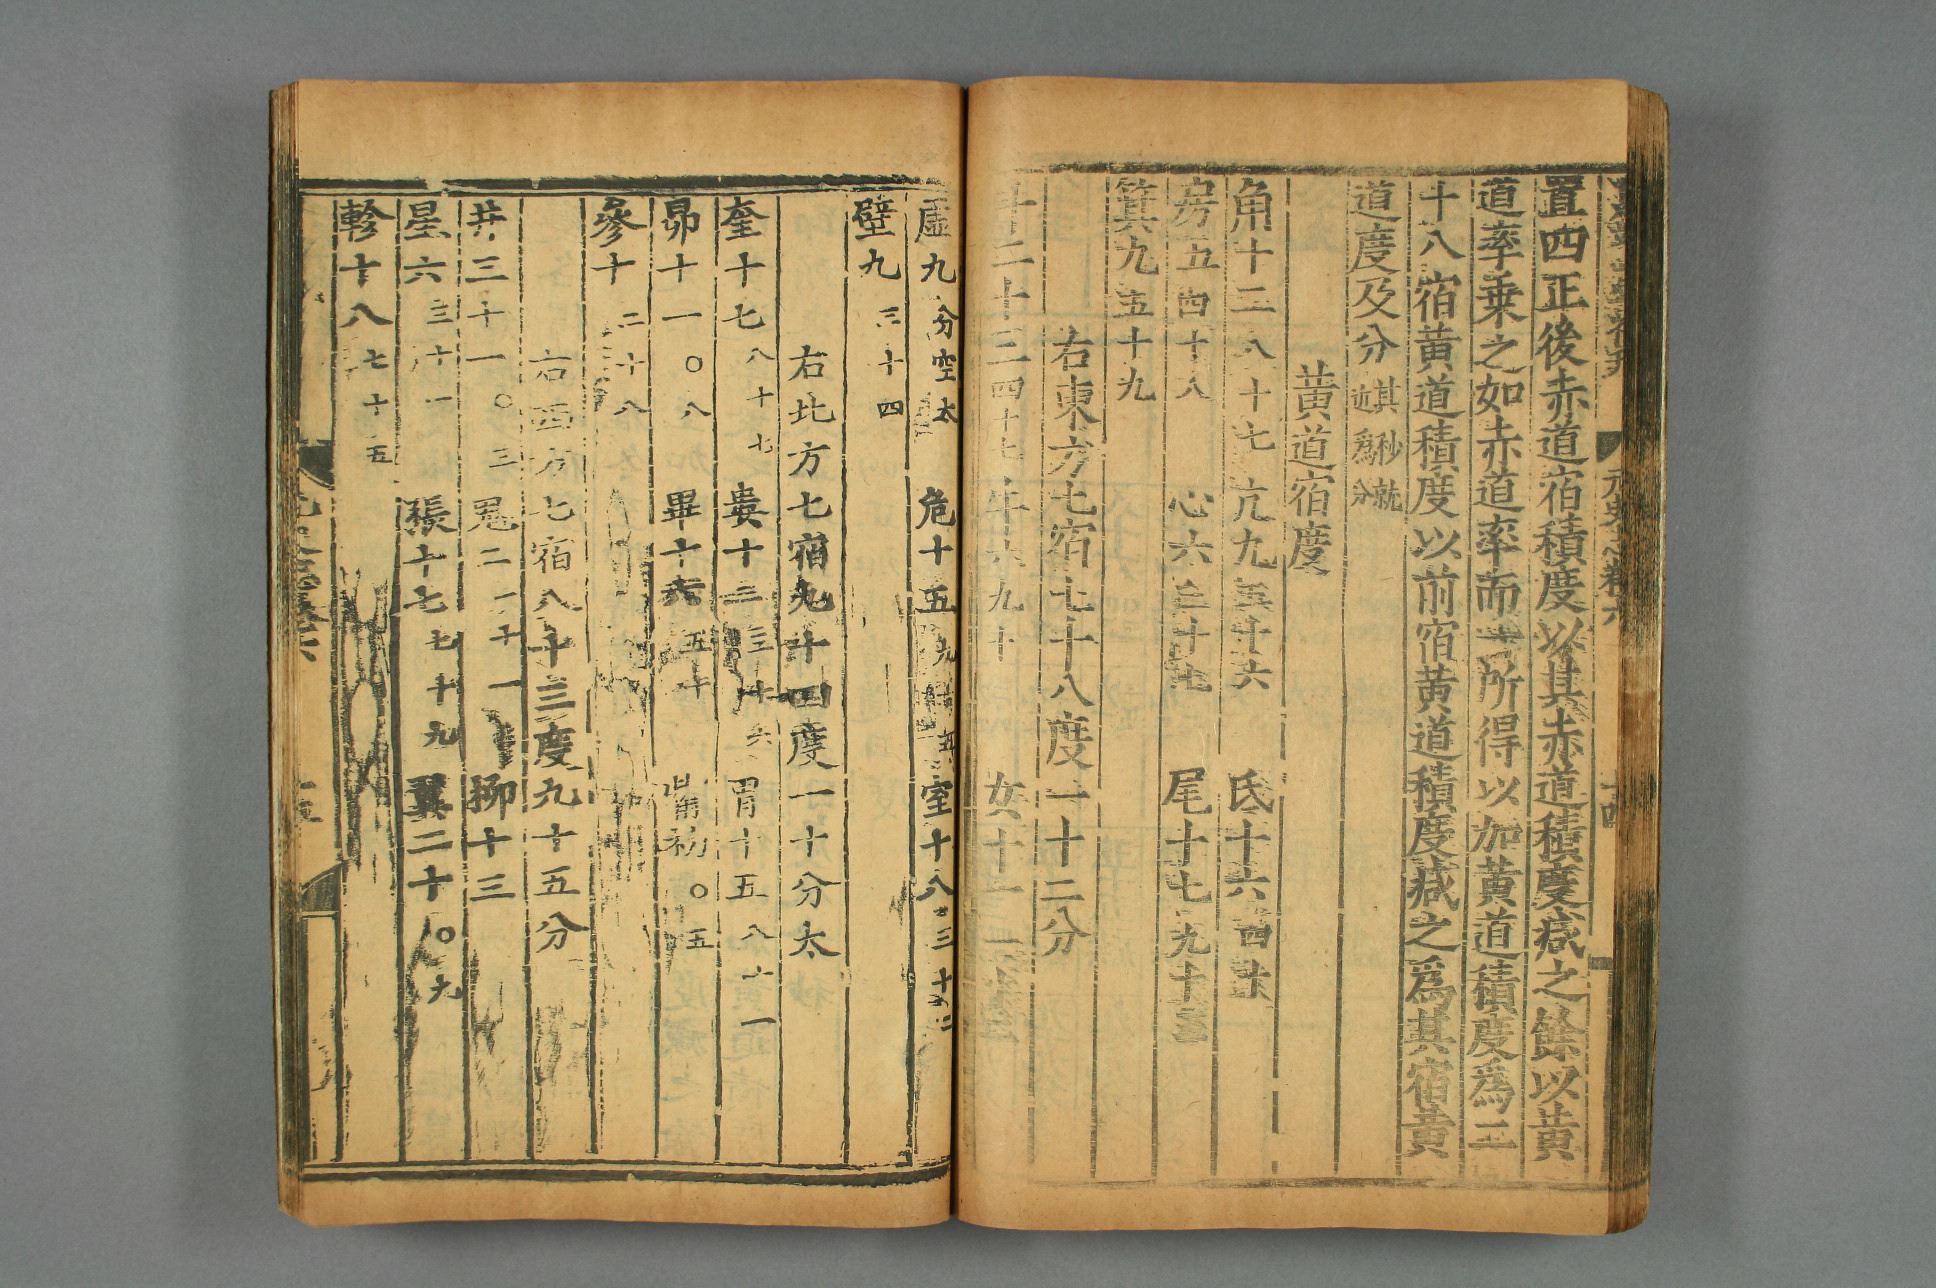 置四正後赤道宿積度以其赤道積度減之餘以黄
道率乗之如赤道率而一所得以加黄道積度為二
十八宿黄道積度以前宿黄道積度減之為其宿黄
道度及分其秒就近為分
黄道宿度
角十二八十七 亢九五十六 氐十六四十
房五四十八 心六二十七 尾十七九十五
箕九五十九
右東方七宿七十八度一十二分
斗二十三四十七 牛六九十 女十一
虚九分空太 危十五九十五 室十八三十二
壁九三十四
右北方七宿九十四度一十分太
奎十七八十七 婁十二三十六 胃十五八十一
昴十一〇八 畢十六五十 觜初〇五
參十二十八
右西方七宿八十三度九十五分
井三十一〇三 鬼二一十一 柳十三
星六三十一 張十七七十九 翼二十〇九
軫十八七十五
元史志卷六 十四